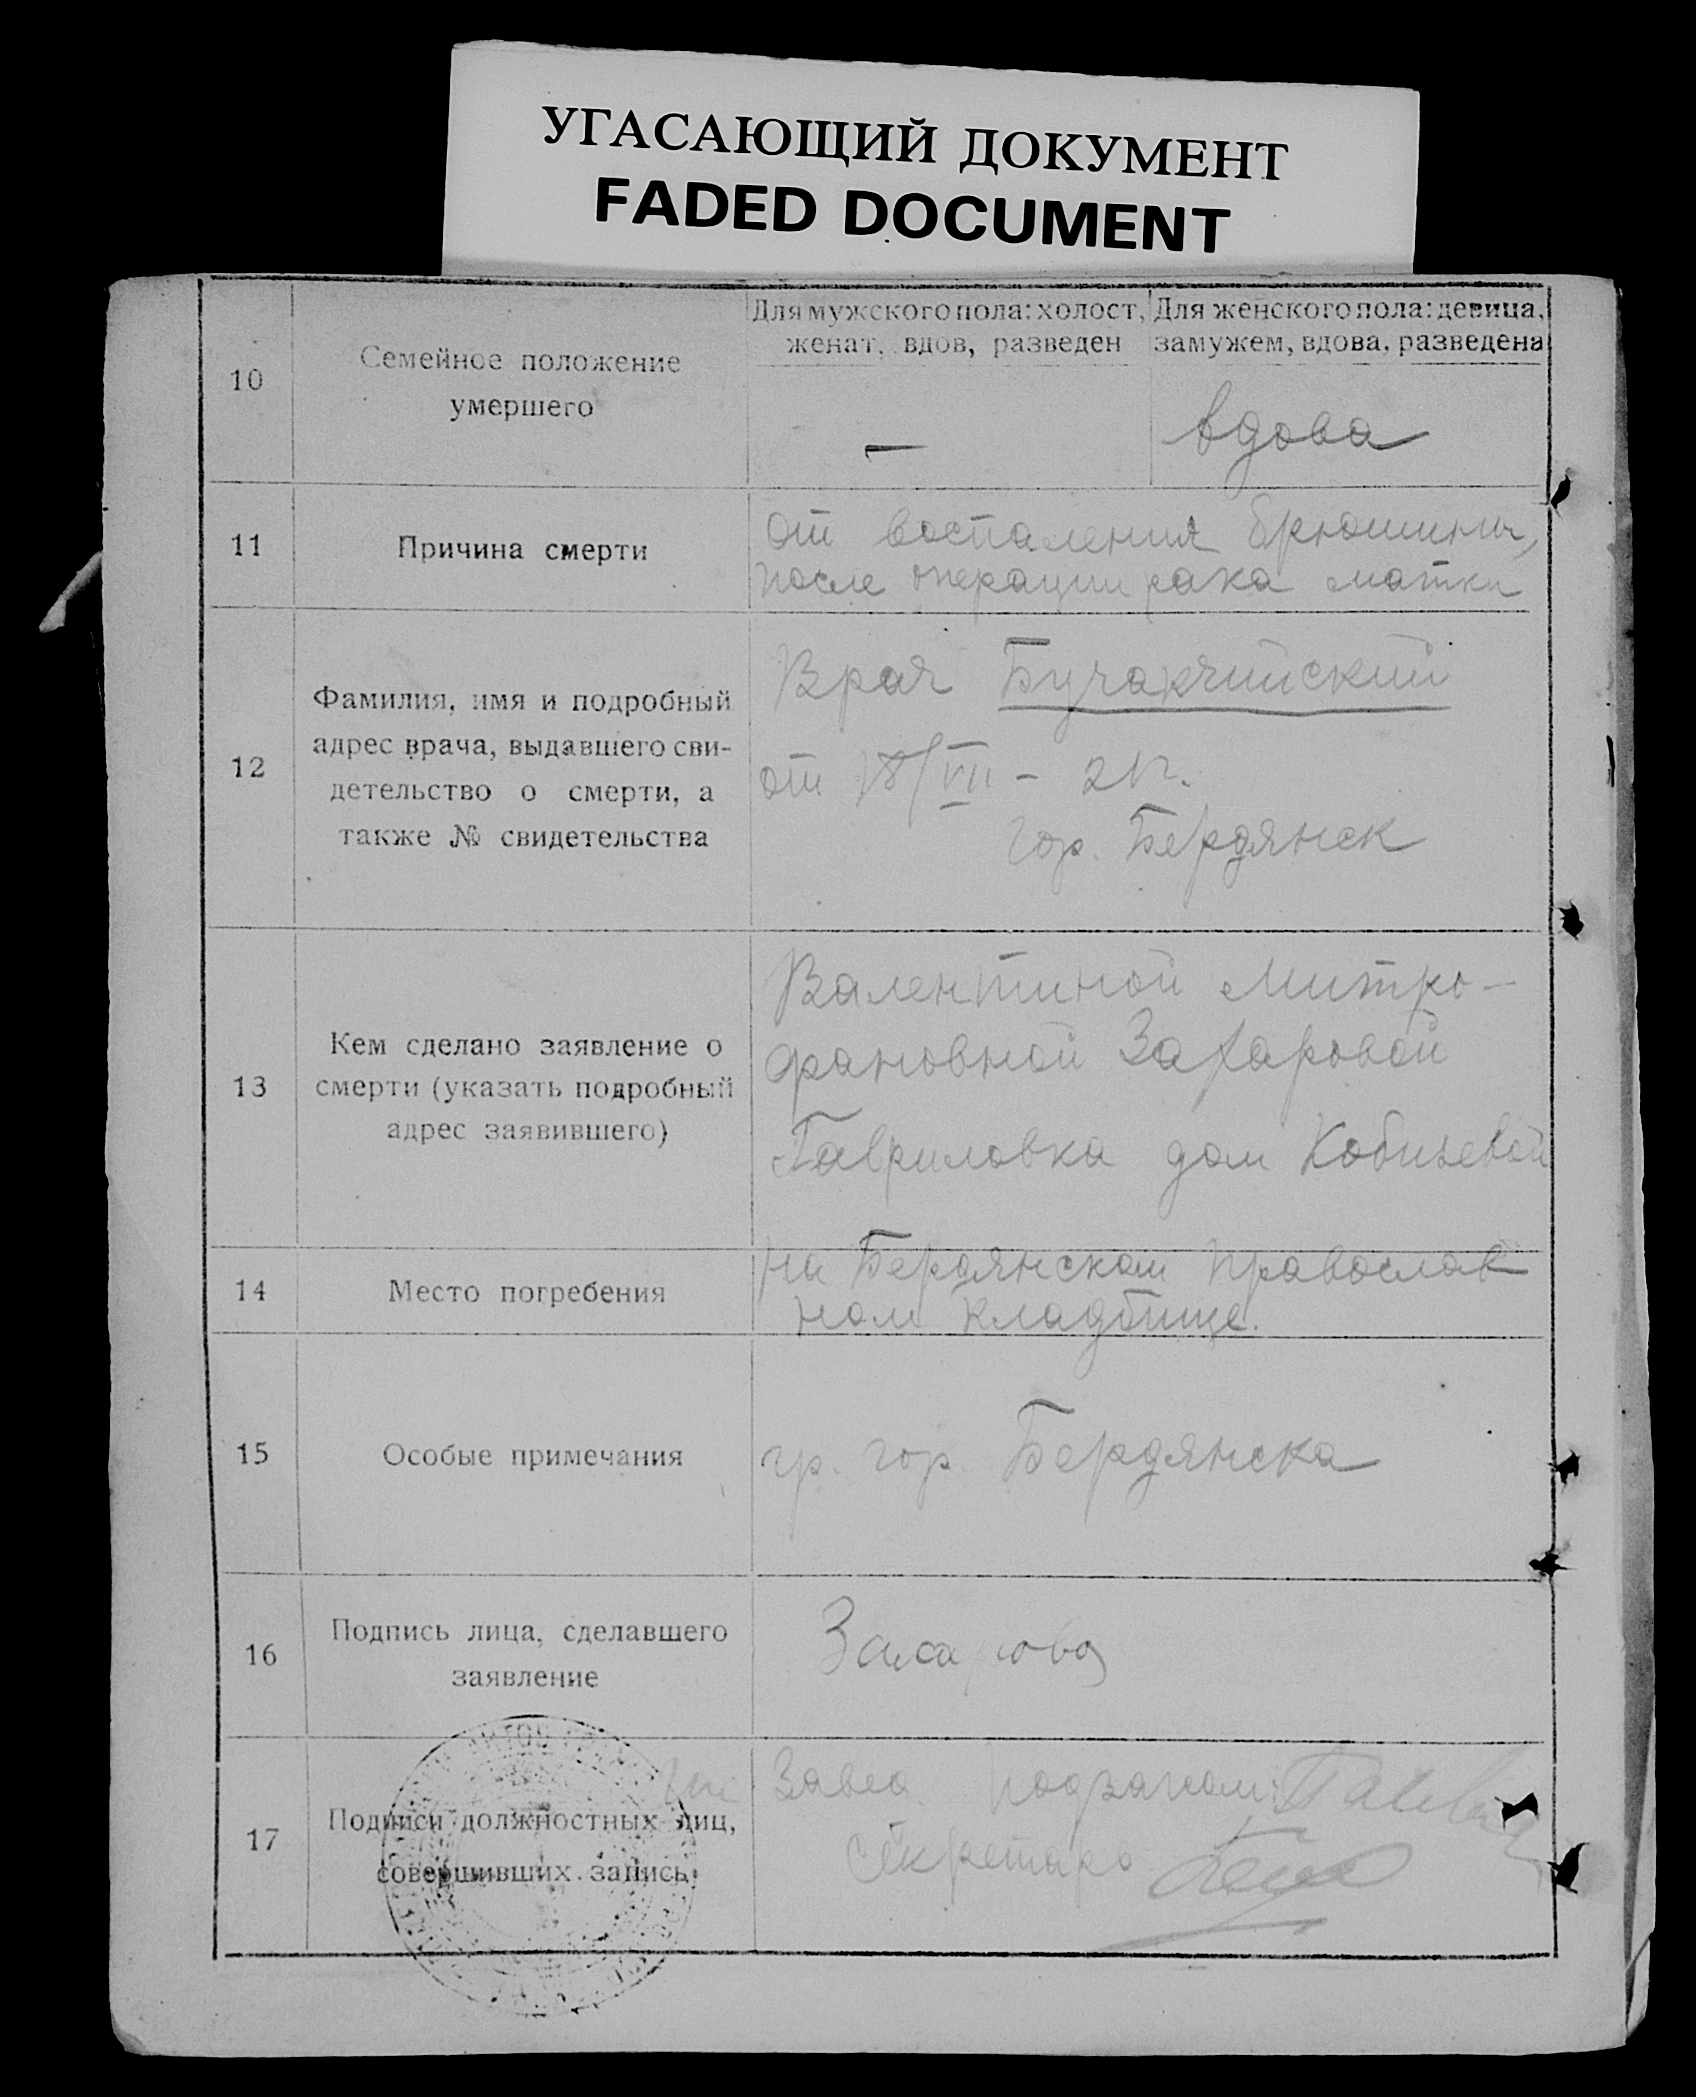 УГАСАЮЩИЙ ДОКУМЕНТ
FADED DOCUMENT
10
Семейное положение
умершего
Для мужского пола: холост,
женат, вдов, разведен
—
Для женского пола: девица,
замужем, вдова, разведена
вдова
11
Причина смерти
От воспаления брюшины,
после операции рака матки
12
Фамилия, имя и подробный
адрес врача, выдавшего сви-
детельство о смерти, а
также № свидетельства
Врач
от 18/VII - 21г.
гор. Бердянск
13
Кем сделано заявление о
смерти (указать подробный
адрес заявившего)
Валентиной Митро-
фановной Захаровой
Гавриловка дом
14
Место погребения
на Бердянском православ
ном кладбище.
15
Особые примечания
гр. гор. Бердянска
16
Подпись лица, сделавшего
заявление
Захарова
17
Подписи должностных лиц,
совершивших запись
Завед. подзагсом
Секретарь